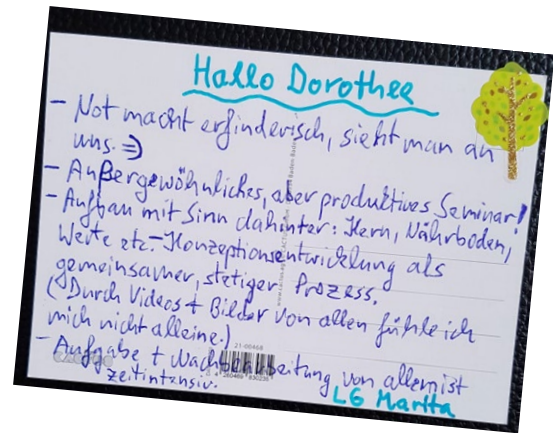 Hallo Dorothee
- Not macht erfinderisch, sieht man an
uns. =)
- Außergewöhnliches, aber produktives Seminar!
- Aufbau mit Sinn dahinter: Kern, Nährboden,
Werte etc. - Konzeptionsentwicklung als
gemeinsamer, stetiger Prozess.
(Durch Videos + Bilder von allen fühle ich
mich nicht alleine.)
- Aufgabe + Nachbearbeitung von allem ist
zeitintensiv.
LG Martha
21-00468